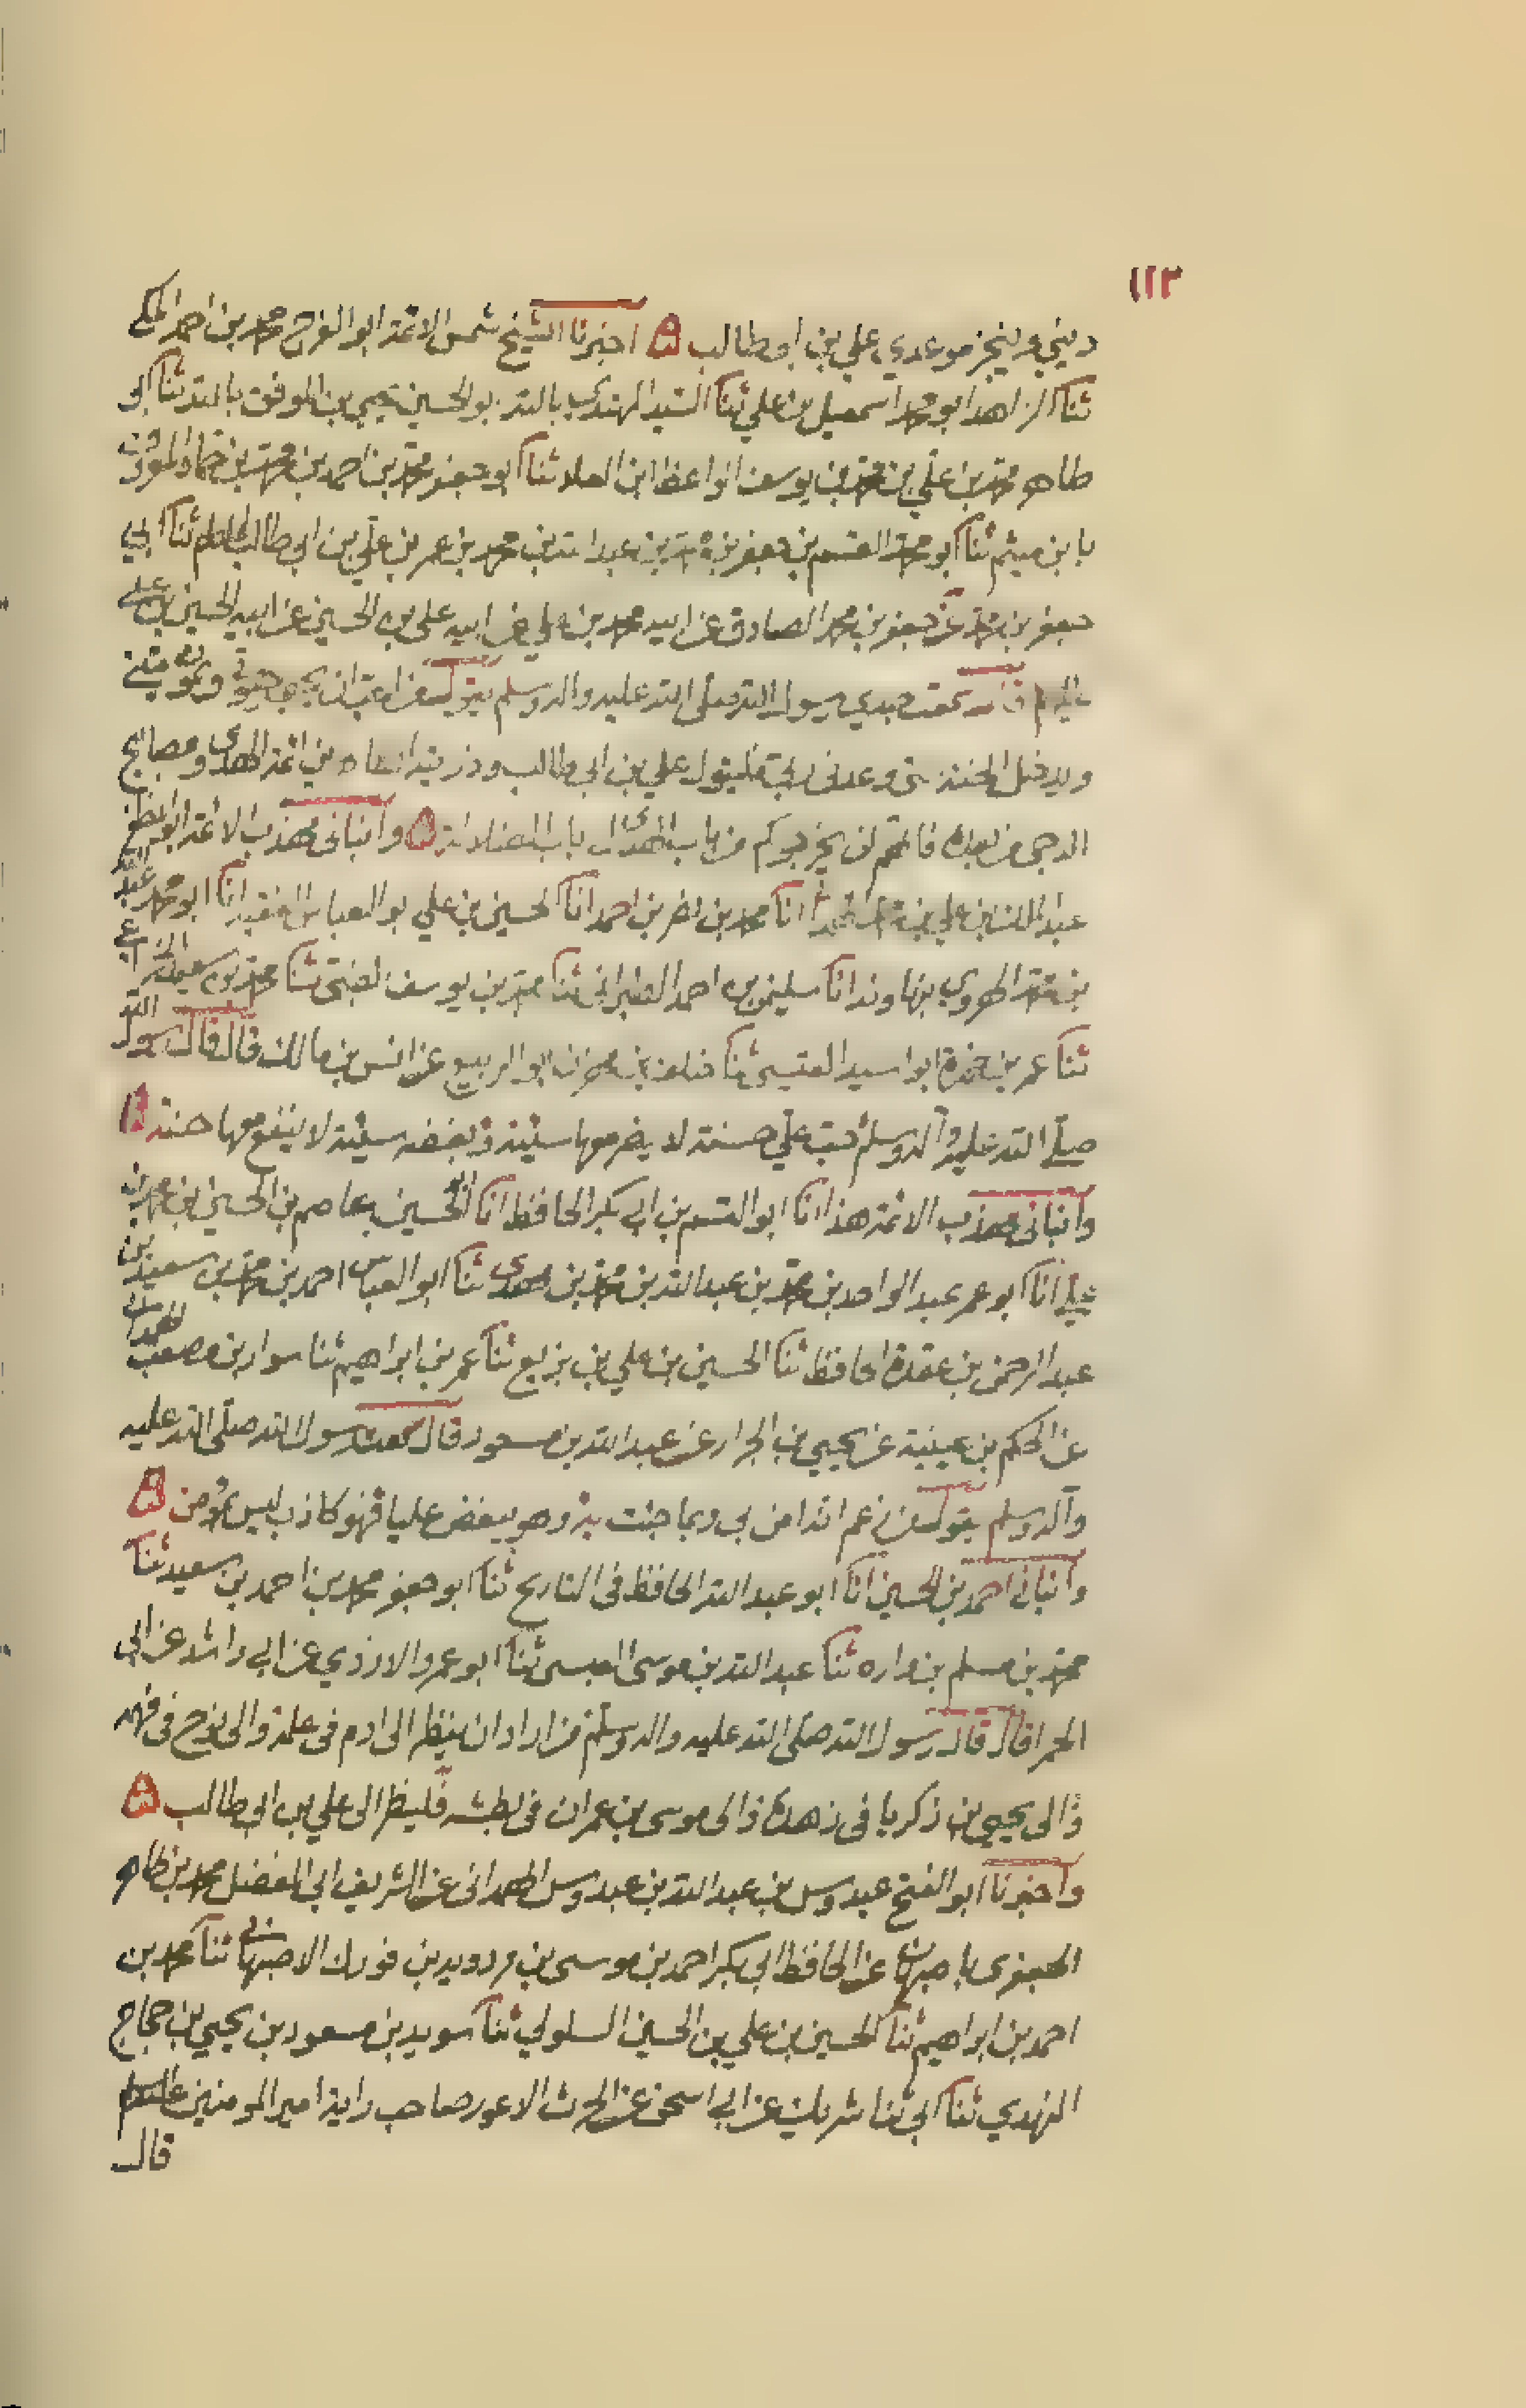 ١١٢
ديني وينجز موعدي علي بن ابي طالب اخبرنا الشيخ شمس الائمة ابو الفرج محمد بن احمد المكي
ثنا الزاهد ابو محمد اسمعيل بن علي ثنا السيد المهتدي بالله بو الحسين يحيى بن الموفق بالله ثنا ابو
طاهر محمد بن علي بن محمد بن يوسف الواعظ ابن العلا ثنا ابو جعفر محمد بن احمد بن محمد بن حماد المعروف
بابن ميثم ثنا ابو محمد القسم بن جعفر بن محمد بن عبد الله بن محمد بن عمر بن علي بن ابي طالب ثنا ابي
جعفر بن محمد عن جعفر بن محمد الصادق عن ابيه محمد بن علي عن ابيه علي بن الحسين عن ابيه الحسين بن علي
سمعت جدي رسول الله صلى الله عليه واله وسلم يقول من احب ان يحيى حيوتي ويموت ميتتي
ويدخل الجنة التي وعدني ربي فليتول علي بن ابي طالب وذريته الطاهرين ائمة الهدى ومصابيح
الدجى من بعده فانهم لن يخرجوكم من باب الهدى الى باب الضلالة وانباني مهذب الائمة ابو المظفر
عبد الملك بن علي بن محمد الهمداني انا محمد بن نصر بن احمد انا الحسين بن علي بو العباس الفقيه انا ابو محمد عبد الله
بن محمد الهروي بنهاوند انا سليمن بن احمد الطبراني ثنا محمد بن يوسف الضبي ثنا محمد بن سعيد الخزاعي
ثنا عمر بن حمزة ابو اسيد القيسي ثنا خلف بن مهران ابو الربيع عن انس بن مالك قال قال رسول الله
صلى الله عليه وآله وسلم حب علي حسنة لا يضر معها سيئة وبغضه سيئة لا ينفع معها حسنة
وانباني مهذب الائمة هذا انا ابو القسم بن ابي بكر الحافظ انا ابو الحسين عاصم بن الحسين بن محمد بن
علي انا ابو عمر عبد الواحد بن محمد بن عبد الله بن محمد بن مهدى ثنا ابو العباس احمد بن محمد بن سعيد بن
عبد الرحمن بن عقدة الحافظ ثنا الحسين بن علي بن بزيع ثنا عمر بن ابراهيم ثنا سوار بن مصعب الهمداني
عن الحكم بن عيينة عن يحيي بن الجزار عن عبد الله بن مسعود قال سمعت رسول الله صلى الله عليه
وآله وسلم يقول من زعم انه امن بي وبما جئت به وهو يبغض عليا فهو كاذب ليس بمؤمن
وانباني احمد بن الحسين انا ابو عبد الله الحافظ في التاريخ ثنا ابو جعفر محمد بن احمد بن سعيد ثنا
محمد بن مسلم بن واره ثنا عبد الله بن موسى العبسى ثنا ابو عمرو الازدي عن ابي راشد عن ابي
الحمرا قال قال رسول الله صلى الله عليه واله وسلم من اراد ان ينظر الى ادم في علمه والى نوح في فهمه
والى يحيي بن زكريا في زهده والى موسى بن عمران في بطشه فلينظر الى علي بن ابي طالب
واخبرنا ابو الفتح عبدوس بن عبد الله بن عبدوس الهمداني عن الشريف ابي المفضل محمد بن طاهر
الجعفرى باصبهان عن الحافظ ابي بكر احمد بن موسى بن مردويه بن فورك الاصبهاني ثنا محمد بن
احمد بن ابراهيم ثنا الحسين بن علي بن الحسين السلولي ثنا سويد بن مسعود بن يحيي بن حجاج
النهدي ثنا ابي ثنا شريك عن ابي اسحق عن الحرث الاعور صاحب راية امير المومنين عليه السلام
قال